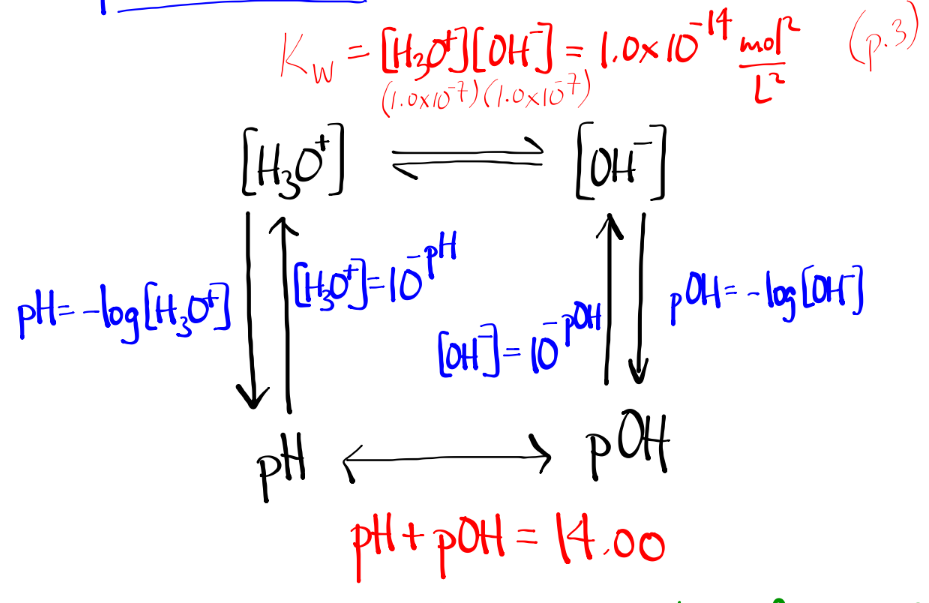 K_w = [H₃O⁺][OH⁻] = 1.0x10⁻¹⁴ mol²/L² (p.3)
(1.0x10⁻⁷)(1.0x10⁻⁷)
[H₃O⁺] ⇌ [OH⁻]
pH = -log[H₃O⁺]
[H₃O⁺] = 10^-pH
[OH⁻] = 10^-pOH
pOH = -log[OH⁻]
pH ↔ pOH
pH + pOH = 14.00